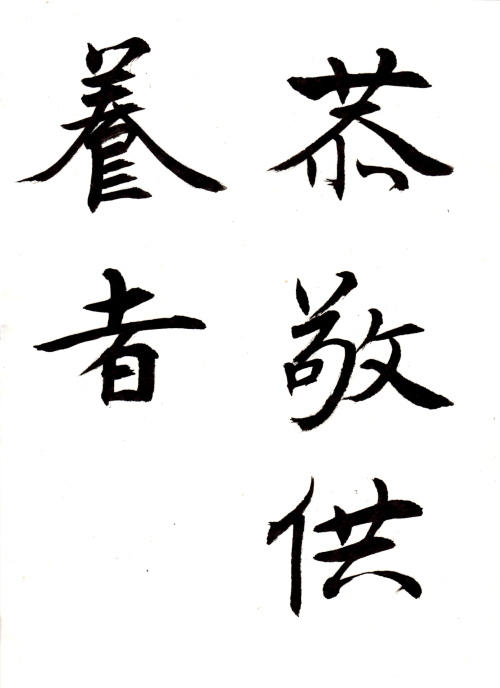 恭敬供
養者